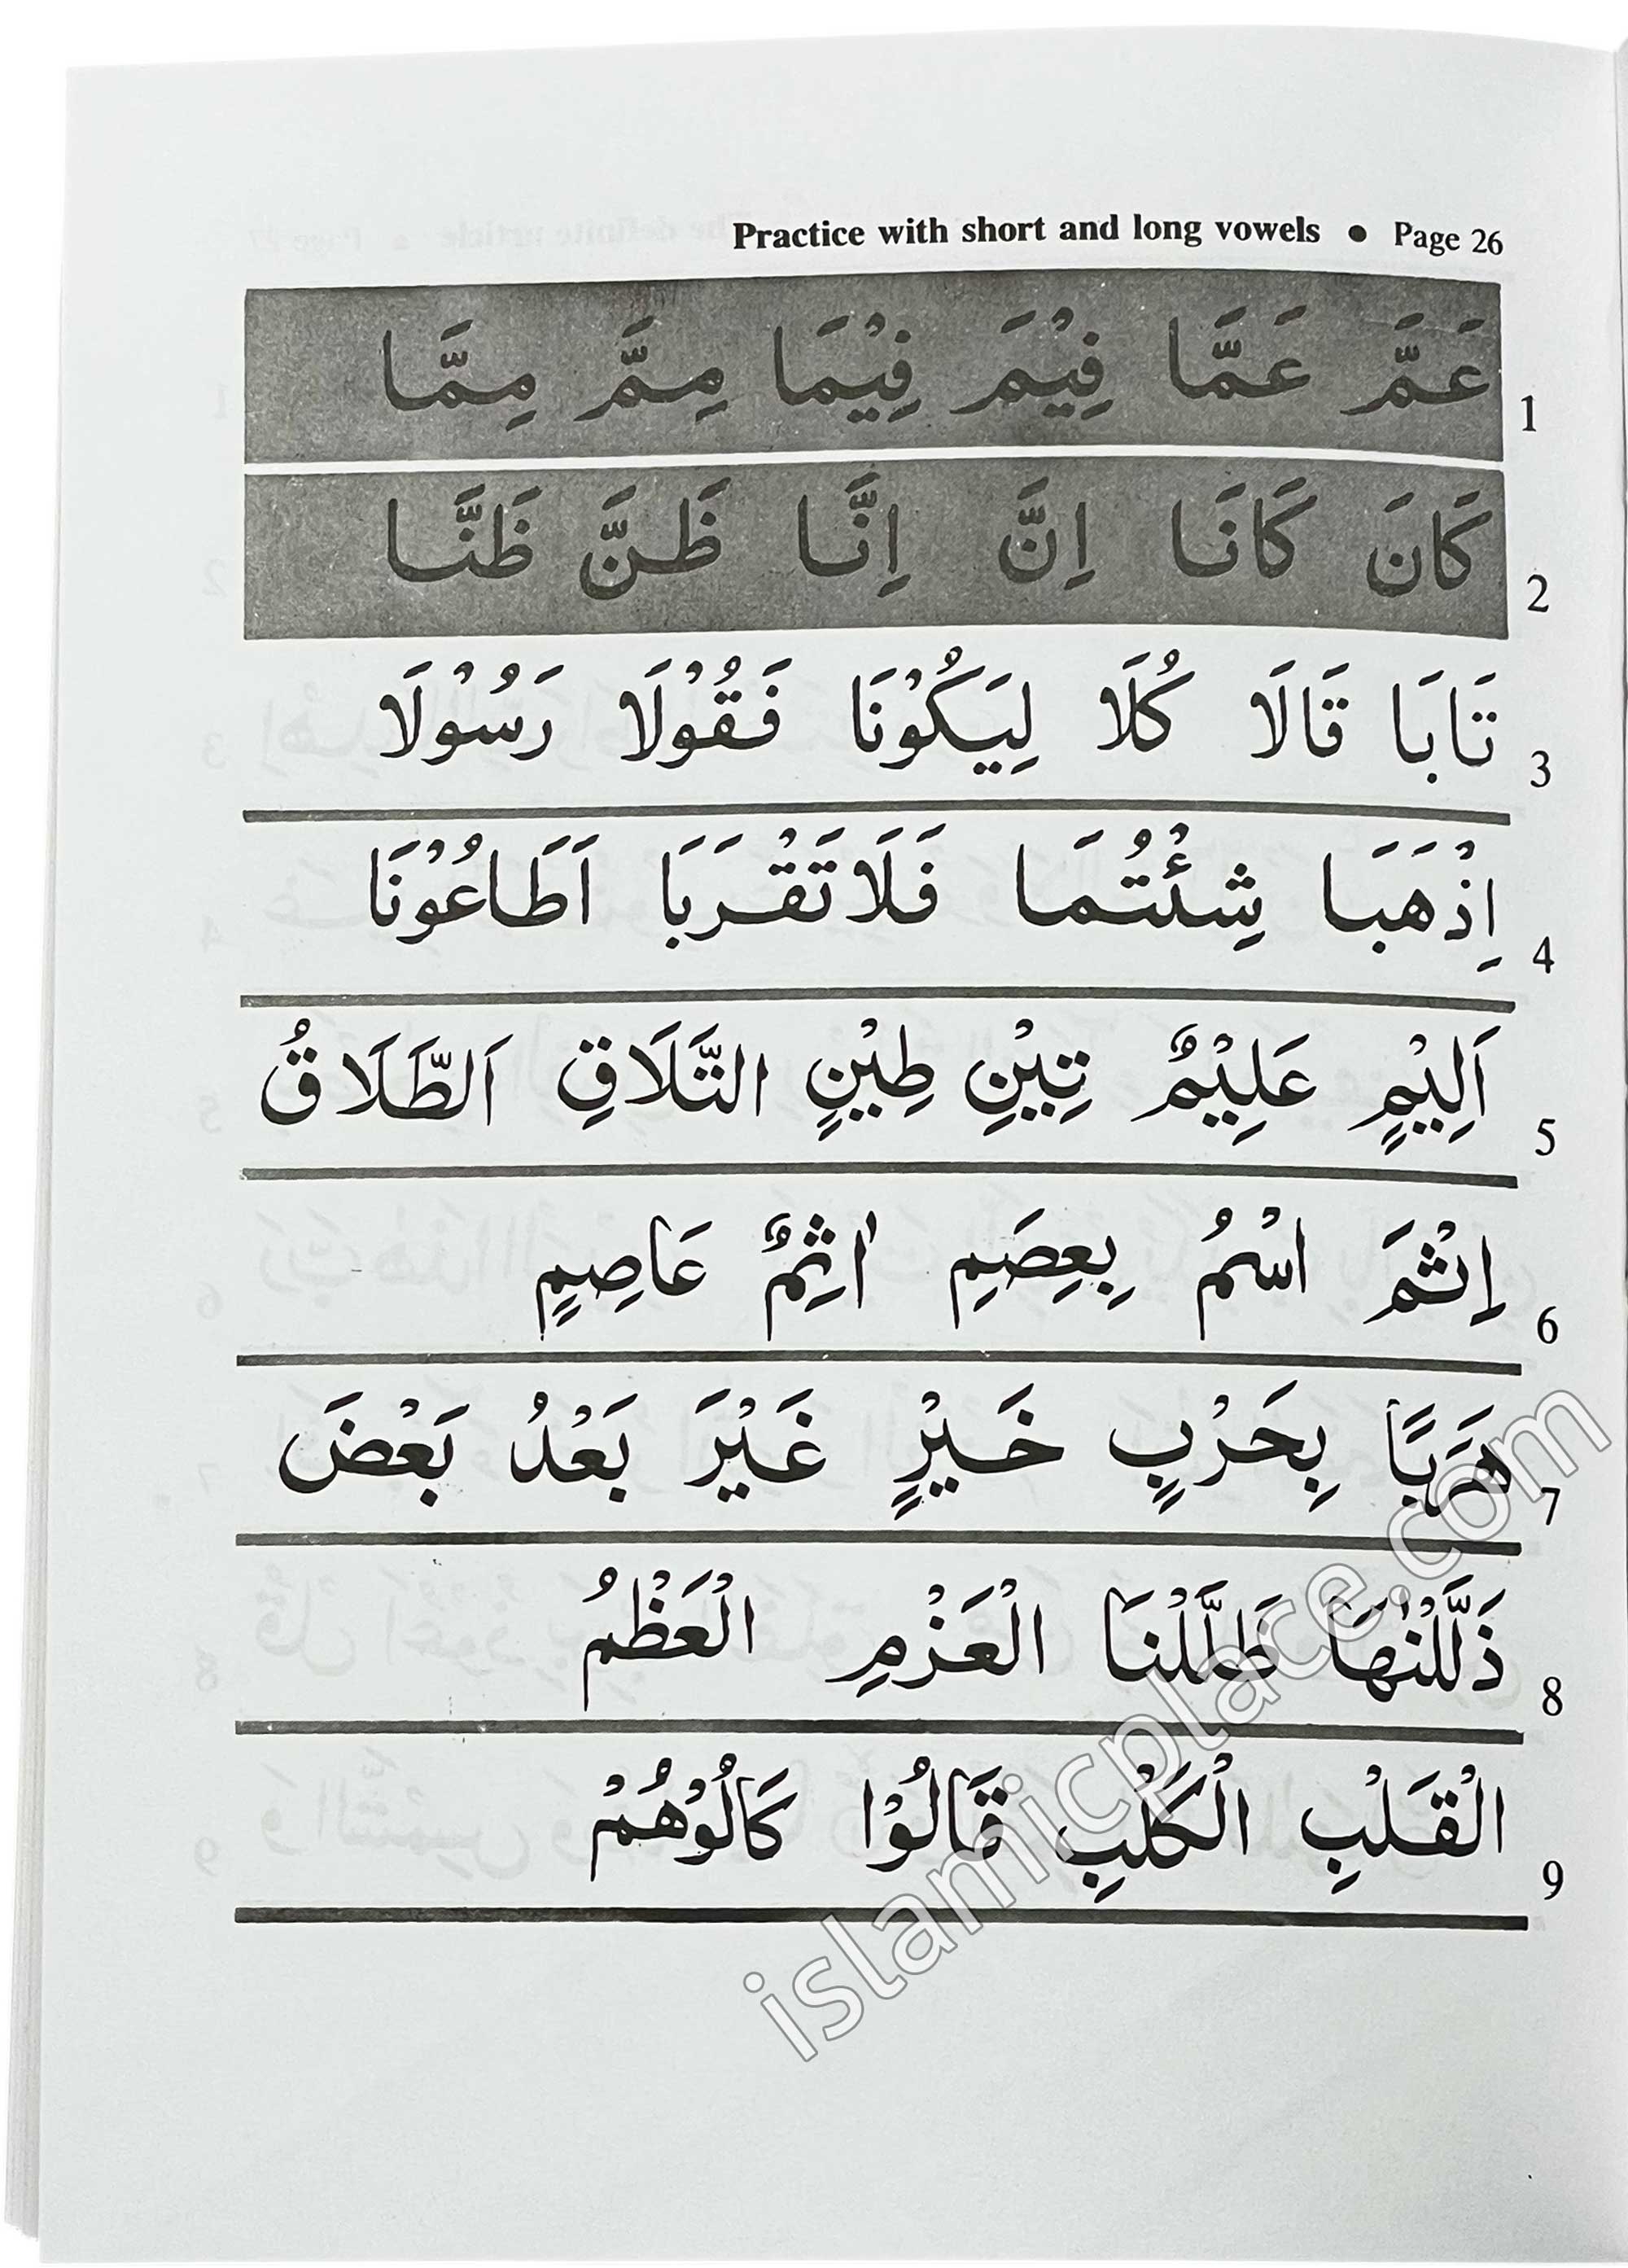 Practice with short and long vowels • Page 26
1 عَمَّ عَمَّا فِيْمَ فِيْمَا مِمَّ مِمَّا
2 كَانَ كَانَا اِنَّ اِنَّا ظَنَّ ظَنَّا
3 تَابَا قَالَا كُلَا لِيَكُوْنَا فَقُوْلَا رَسُوْلَا
4 اِذْهَبَا شِئْتُمَا فَلَا تَقْرَبَا اَطَاعُوْنَا
5 اَلِيْمٍ عَلِيْمٌ تِيْنِ طِيْنٍ التَّلَاقِ اَلطَّلَاقُ
6 اِثْمَ اسْمُ بِعِصَمِ اٰثِمٌ عَاصِمٍ
7 هَرَبًا بِحَرْبٍ خَيْرٍ غَيْرَ بَعْدُ بَعْضَ
8 ذَلَّلْنٰهَا ظَلَّلْنَا الْعَزْمِ الْعَظْمُ
9 الْقَلْبِ الْكَلْبِ قَالُوْا كَالُوْهُمْ
islamicplace.com